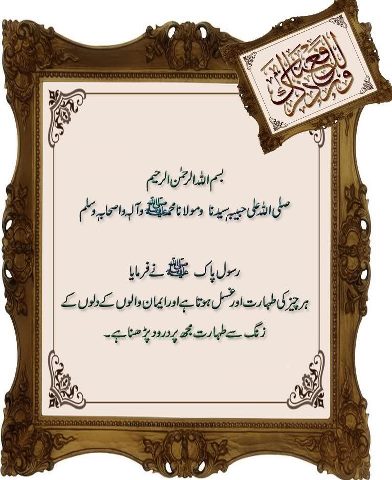 ورفعنا لك ذكرك
بسم اللہ الرحمٰن الرحیم
صلی اللہ علی حبیبہٖ سیدنا و مولانا محمد ﷺ وآلہٖ واصحابہٖ وسلم
رسول پاک ﷺ نے فرمایا
ہر چیز کی طہارت اور غسل ہوتا ہے اور ایمان والوں کے دلوں کے
زنگ سے طہارت مجھ پر درود پڑھنا ہے۔